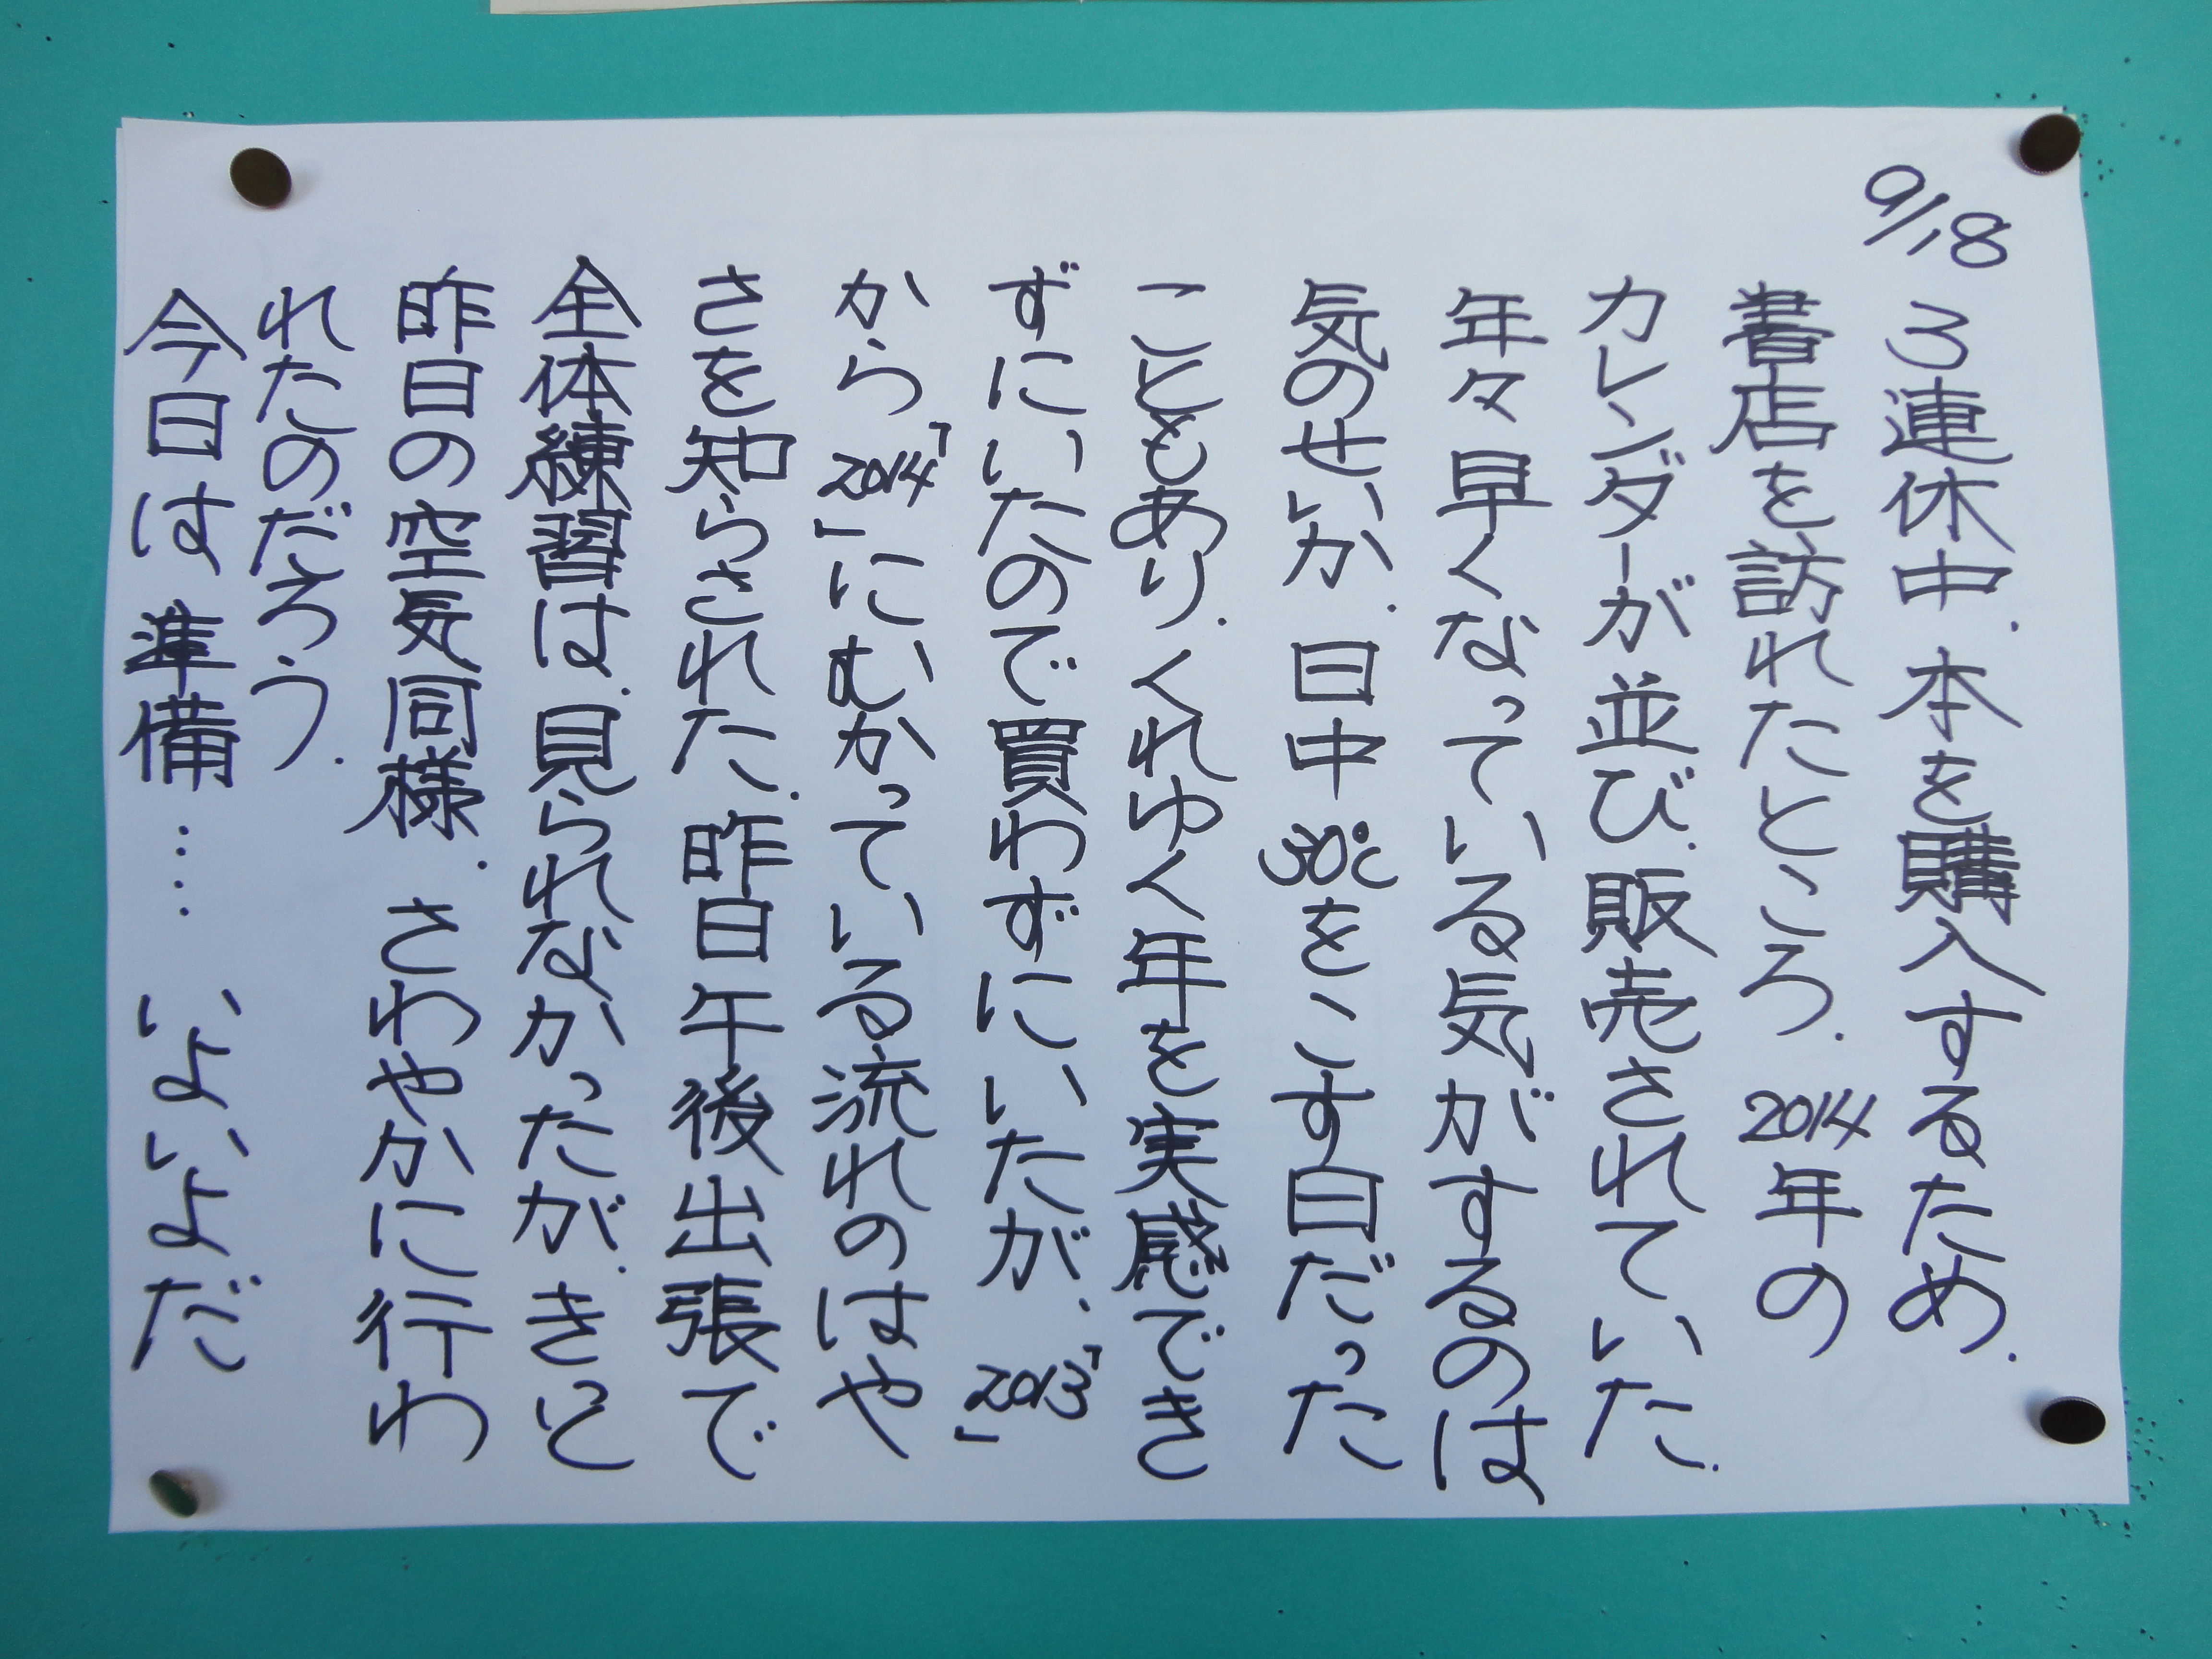 9/18
3連休中.本を購入するため.
書店を訪れたところ.2014年の
カレンダーが並び.販売されていた.
年々早くなっている気がするのは
気のせいか.日中30℃をこす日だった
こともあり.くれゆく年を実感でき
ずにいたので買わずにいたが、「2013」
から「2014」にむかっている流れのはや
さを知らされた.昨日午後出張で
全体練習は.見られなかったが.きっと
昨日の空気同様.さわやかに行わ
れたのだろう.
今日は準備……いよいよだ